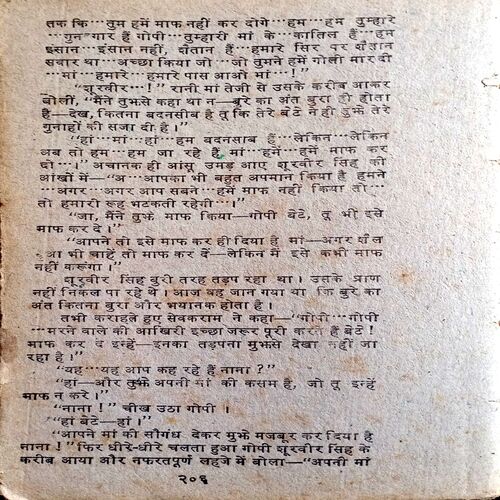 तक कि···तुम हमें माफ नहीं कर दोगे···हम···हम तुम्हारे
···गुनहगार हैं गोपी···तुम्हारी मां के···कातिल हैं···हम
इन्सान···इंसान नहीं, शैतान हैं···हमारे सिर पर शैतान
सवार था···अच्छा किया जो···जो तुमने हमें गोली मार दी
···मां···हमारे···हमारे पास आओ मां···!"
"शूरवीर···!" रानी मां तेजी से उसके करीब आकर
बोलीं, "मैंने तुझसे कहा था न—बुरे का अंत बुरा ही होता
है—देख, कितना बदनसीब है तू कि तेरे बेटे ने ही तुझे तेरे
गुनाहों की सजा दी है।"
"हां···मां···हां···हम बदनसाब हैं···लेकिन···लेकिन
अब तो हम···हम जा रहे हैं, मां···हमें···हमें माफ कर
दो···।" अचानक ही आंसू उमड़ आए शूरवीर सिंह की
आंखों में—"अ···आपका भी बहुत अपमान किया है हमने
···अगर···अगर आप सबने···हमें माफ नहीं किया तो···
तो हमारी रूह भटकती रहेगी···।"
"जा, मैंने तुझे माफ किया—गोपी बेटे, तू भी इसे
माफ कर दे।"
"आपने तो इसे माफ कर ही दिया है मां—अगर शैल
आ भी चाहें तो माफ कर दें—लेकिन मैं इसे कभी माफ
नहीं करूंगा।"
शूरवीर सिंह बुरी तरह तड़प रहा था। उसके प्राण
नहीं निकल पा रहे थे। आज वह जान गया था कि बुरे का
अंत कितना बुरा और भयानक होता है।
तभी कराहते हुए सेवकराम ने कहा—"गोपी···गोपी
···मरने वाले की आखिरी इच्छा जरूर पूरी करते हैं बेटे!
माफ कर दे इन्हें—इनका तड़पना मुझसे देखा नहीं जा
रहा है।"
"यह···यह आप कह रहे हैं नाना?"
"हां—और तुझे अपनी मां की कसम है, जो तू इन्हें
माफ न करे।"
"नाना!" चीख उठा गोपी।
"हां बेटे—हां।"
"आपने मां की सौगंध देकर मुझे मजबूर कर दिया है
नाना!" फिर धीरे-धीरे चलता हुआ गोपी शूरवीर सिंह के
करीब आया और नफरतपूर्ण लहजे में बोला—"अपनी मां
२०६